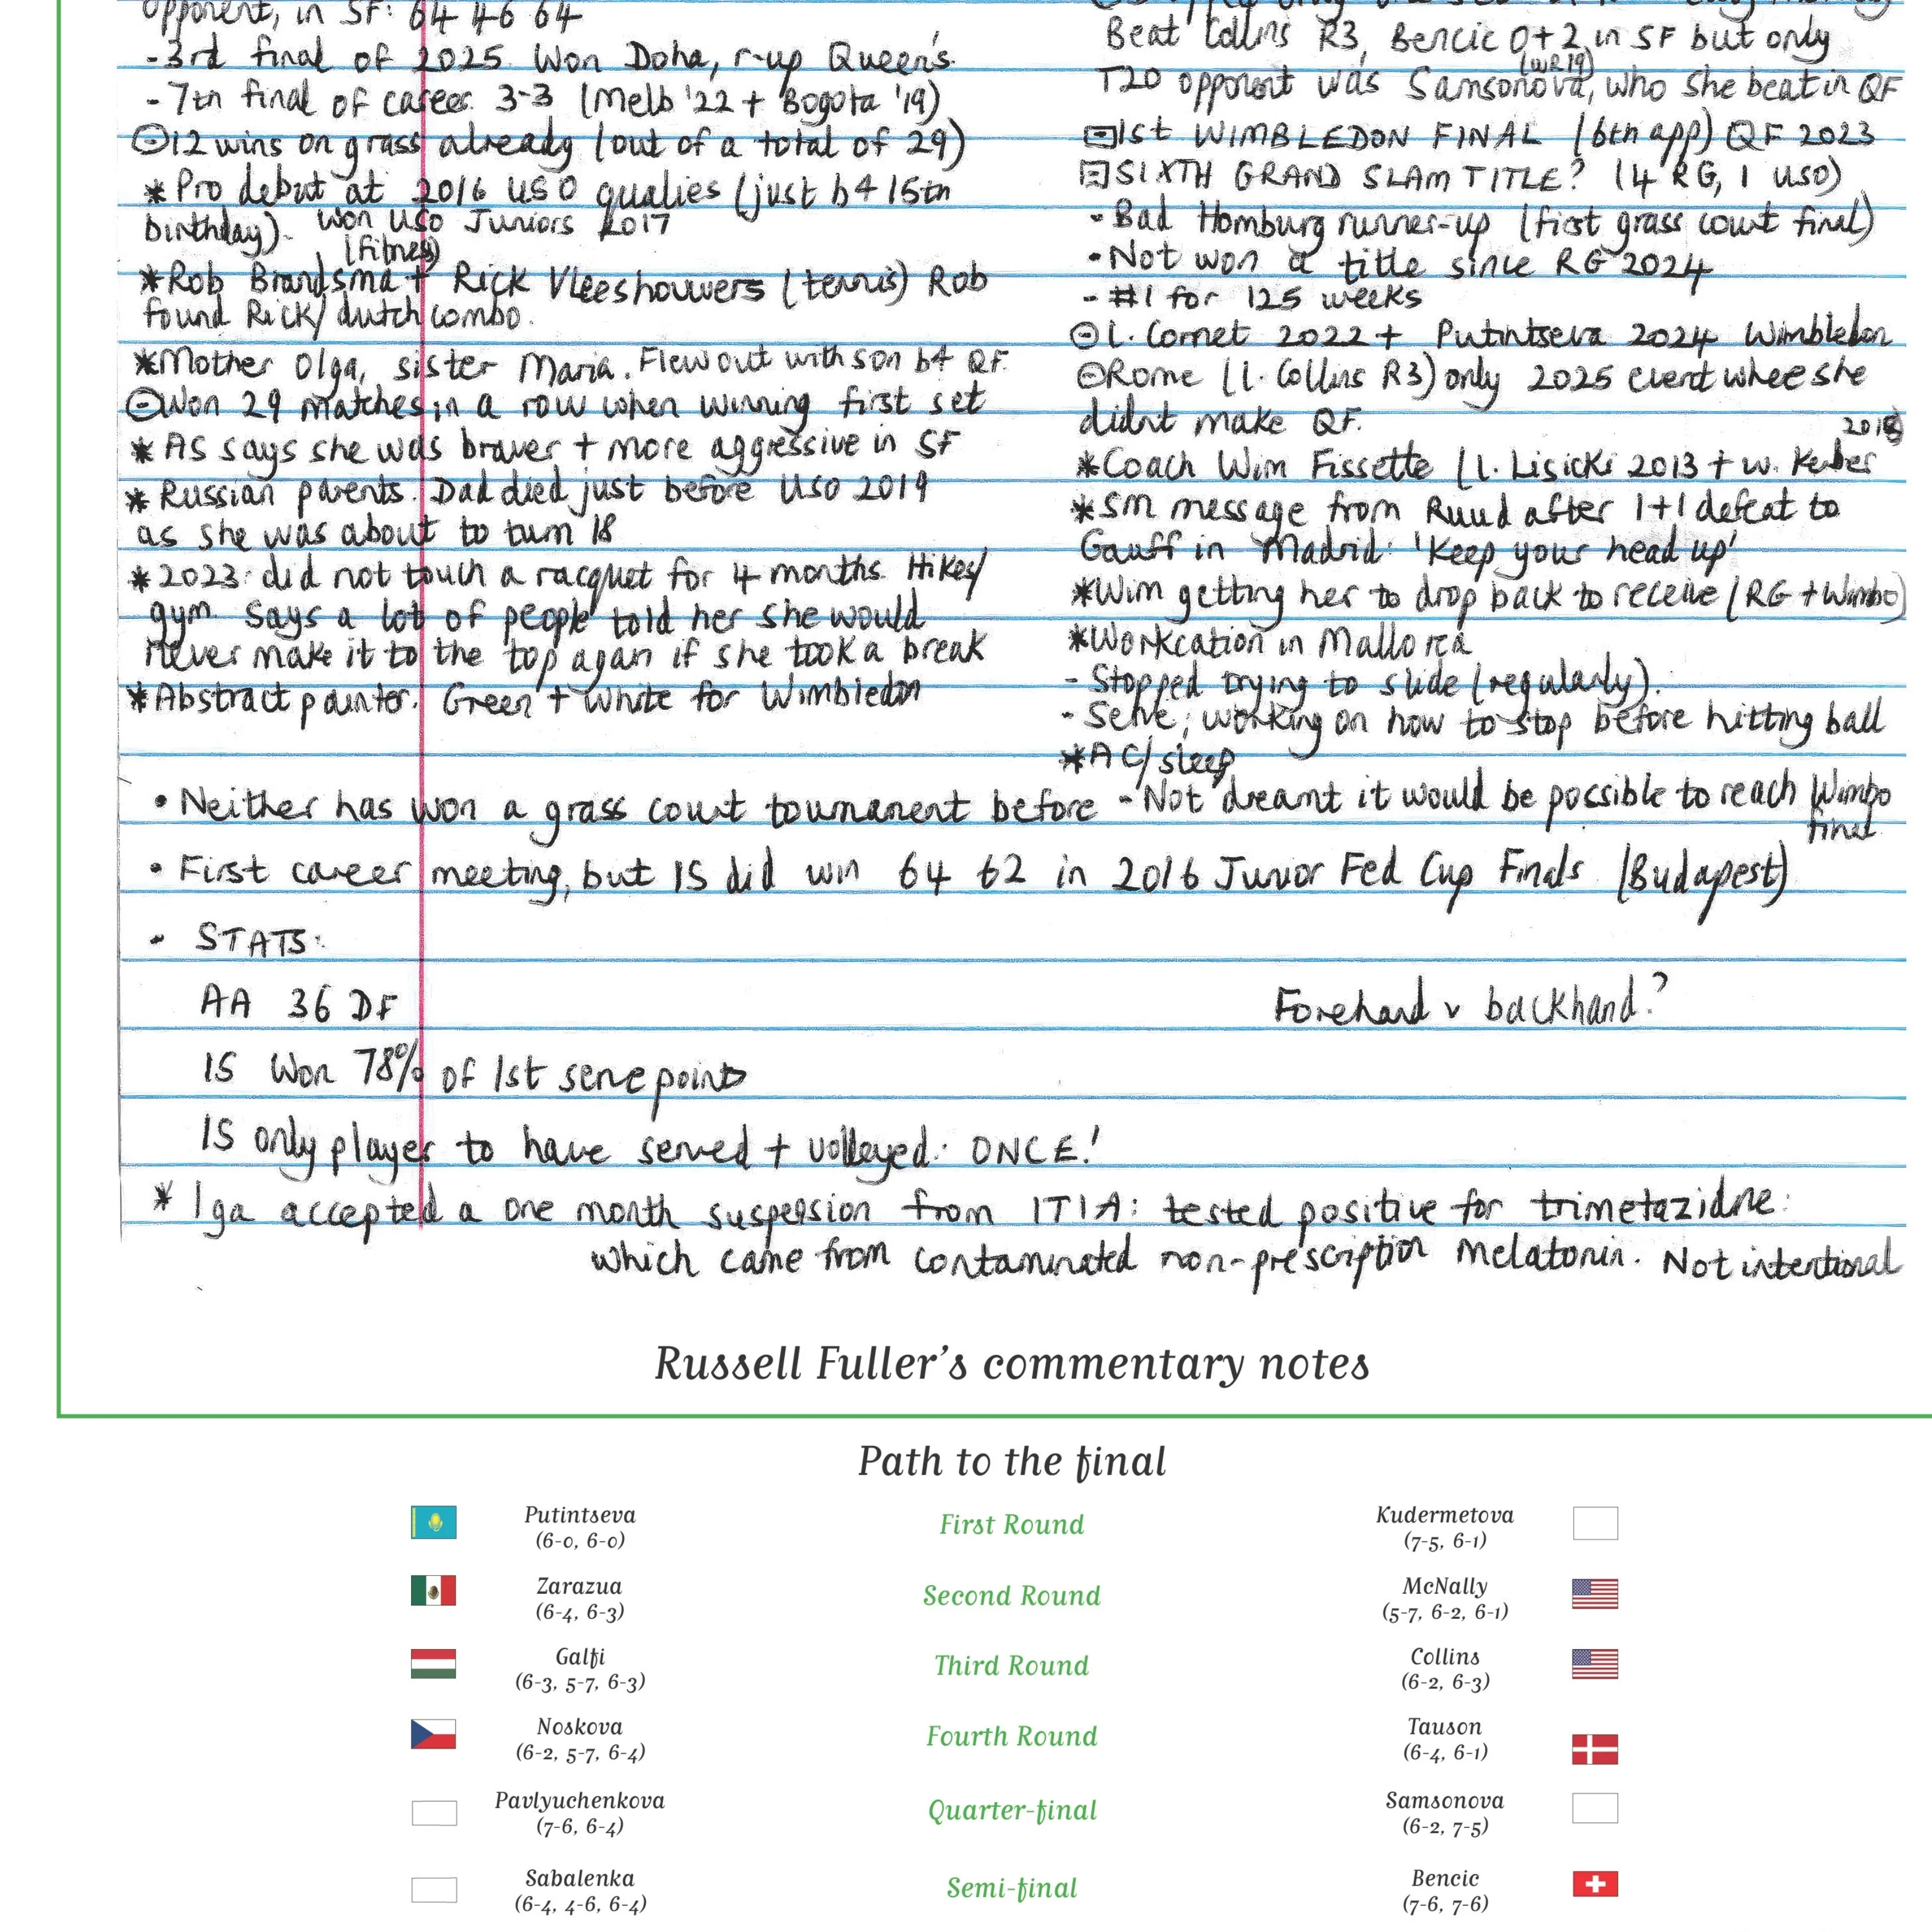 opponent, in SF: 64 46 64
-3rd final of 2025. Won Doha, r-up Queen's.
-7th final of career. 3-3 (Melb '22 + Bogota '19)
12 wins on grass already (out of a total of 29)
* Pro debut at 2016 USO qualies (just b4 15th
birthday). Won USO Juniors 2017
(fitness)
*Rob Brandsma + Rick Vleeshouwers (tennis) Rob
found Rick/dutch combo.
*Mother Olga, sister Maria. Flew out with son b4 QF.
Won 29 matches in a row when winning first set
* AS says she was braver + more aggressive in SF
* Russian parents. Dad died just before USO 2019
as she was about to turn 18
*2023: did not touch a racquet for 4 months. Hikes/
gym. Says a lot of people told her she would
never make it to the top again if she took a break
*Abstract painter. Green + white for Wimbledon
Beat Collins R3, Bencic 0+2 in SF but only
(WR19)
T20 opponent was Samsonova, who she beat in QF
1st WIMBLEDON FINAL (6th app) QF 2023
SIXTH GRAND SLAM TITLE? (4 RG, 1 USO)
- Bad Homburg runner-up (first grass court final)
- Not won a title since RG 2024
- #1 for 125 weeks
l. Cornet 2022 + Putintseva 2024 Wimbledon
Rome (l. Collins R3) only 2025 event whee she
didnt make QF.
2018
*Coach Wim Fissette (l. Lisicki 2013 + w. Kerber
*SM message from Ruud after 1+1 defeat to
Gauff in Madrid: 'Keep your head up'
*Wim getting her to drop back to receive (RG + Wimbo)
*Workcation in Mallorca
- Stopped trying to slide (regularly).
- Serve; working on how to stop before hitting ball
*AC/sleep
- Not dreamt it would be possible to reach Wimbo
final
• Neither has won a grass court tournament before
• First career meeting, but IS did win 64 62 in 2016 Junior Fed Cup Finals (Budapest)
- STATS:
AA 36 DF
Forehand v backhand?
IS Won 78% of 1st serve points
IS only player to have served + volleyed: ONCE!
* Iga accepted a one month suspension from ITIA: tested positive for trimetazidne:
which came from contaminated non-prescription melatonin. Not intentional
Russell Fuller's commentary notes
Path to the final
Putintseva
(6-0, 6-0)
First Round
Kudermetova
(7-5, 6-1)
Zarazua
(6-4, 6-3)
Second Round
McNally
(5-7, 6-2, 6-1)
Galfi
(6-3, 5-7, 6-3)
Third Round
Collins
(6-2, 6-3)
Noskova
(6-2, 5-7, 6-4)
Fourth Round
Tauson
(6-4, 6-1)
Pavlyuchenkova
(7-6, 6-4)
Quarter-final
Samsonova
(6-2, 7-5)
Sabalenka
(6-4, 4-6, 6-4)
Semi-final
Bencic
(7-6, 7-6)